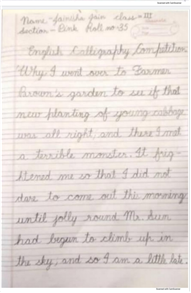 Name - familia jain class - III
Section - Pink Roll no - 35
English Calligraphy Competition
Why I went over to Farmer
Brown's garden to see if that
new planting of young cabbage
was all right, and there I met
a terrible monster. It frig-
htened me so that I did not
dare to come out this morning
until jolly round Mr. Sun
had begun to climb up in
the sky, and so I am a little late.